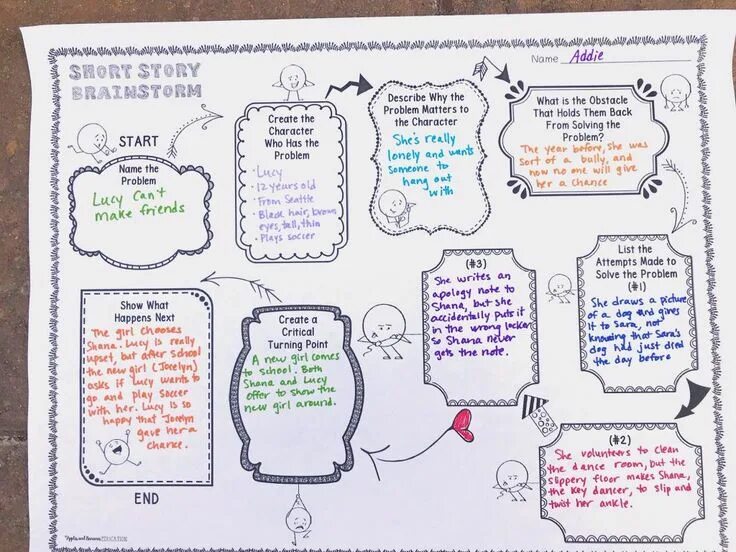 SHORT STORY
BRAINSTORM
Name Addie
START
Name the
Problem
Lucy Can't
make friends
Create the
Character
Who Has the
Problem
· Lucy
· 12 years old
· From Seattle
· Black hair, brown
eyes, tall, thin
· Plays soccer
Describe Why the
Problem Matters to
the Character
She's really
lonely and wants
someone to
hang out
with
What is the Obstacle
That Holds Them Back
From Solving the
Problem?
The year before, she was
sort of a bully, and
now no one will give
her a chance
List the
Attempts Made to
Solve the Problem
(#1)
She draws a picture
of a dog and gives
it to Sara, not
knowing that Sara's
dog had just died
the day before
(#2)
She volunteers to clean
the dance room, but the
slippery floor makes Shana,
the key dancer, to slip and
twist her ankle.
(#3)
She writes an
apology note to
Shana, but she
accidentally puts it
in the wrong locker
so Shana never
gets the note.
Create a
Critical
Turning Point
A new girl comes
to school. Both
Shana and Lucy
offer to show the
new girl around.
Show What
Happens Next
The girl chooses
Shana. Lucy is really
upset, but after school
the new girl (Jocelyn)
asks if Lucy wants to
go and play soccer
with her. Lucy is so
happy that Jocelyn
gave her a
chance.
END
EDUCATION